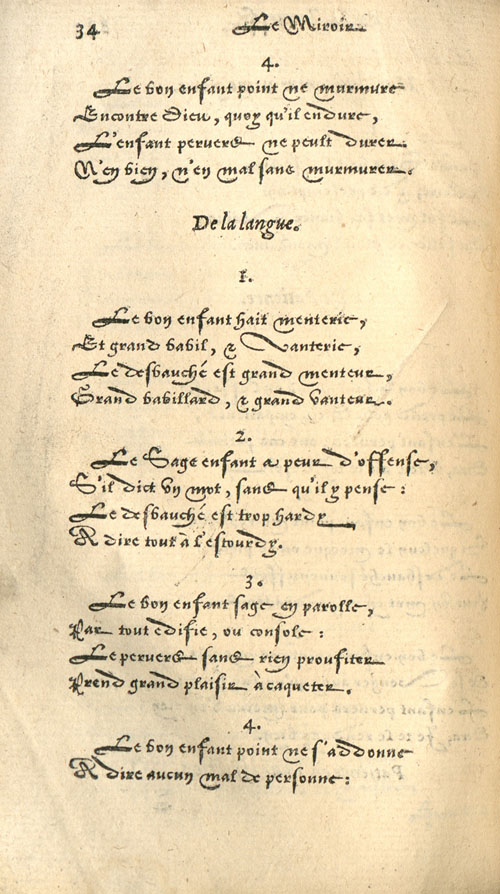 34
Le Miroir
4.
Le bon enfant point ne murmure
Encontre Dieu, quoy qu'il endure,
L'enfant pervers ne peult durer
N'en bien, n'en mal sans murmurer.
De la langue.
1.
Le bon enfant hait menterie,
Et grand babil, & vanterie,
Le desbauché est grand menteur,
Grand babillard, & grand vanteur.
2.
Le Sage enfant a peur d'offense,
S'il dict un mot, sans qu'il y pense:
Le desbauché est trop hardy
A dire tout à l'estourdy.
3.
Le bon enfant sage en parolle,
Par tout edifie, ou console:
Le pervers sans rien proufiter
Prend grand plaisir à caqueter.
4.
Le bon enfant point ne s'addonne
A dire aucun mal de personne: